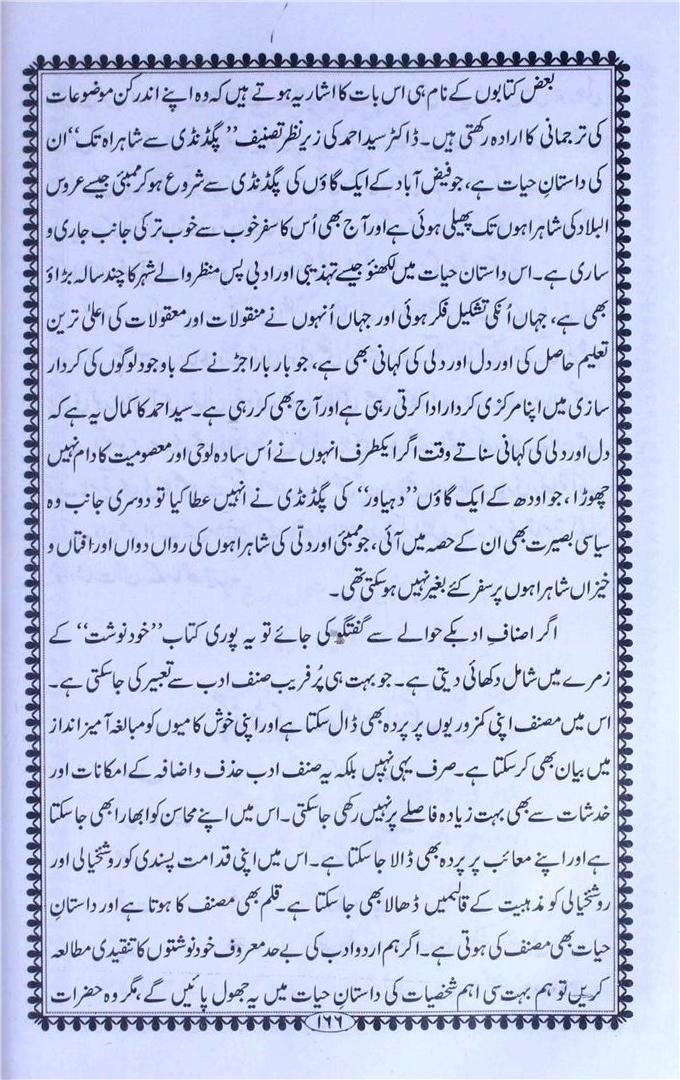 بعض کتابوں کے نام ہی اس بات کا اشاریہ ہوتے ہیں کہ وہ اپنے اندر کن موضوعات
کی ترجمانی کا ارادہ رکھتی ہیں۔ ڈاکٹر سید احمد کی زیرِ نظر تصنیف ”پگڈنڈی سے شاہراہ تک“ ان
کی داستانِ حیات ہے، جو فیض آباد کے ایک گاؤں کی پگڈنڈی سے شروع ہو کر ممبئی جیسے عروس
البلاد کی شاہراہوں تک پھیلی ہوئی ہے اور آج بھی اُس کا سفر خوب سے خوب تر کی جانب جاری و
ساری ہے۔ اس داستان حیات میں لکھنؤ جیسے تہذیبی اور ادبی پس منظر والے شہر کا چند سالہ پڑاؤ
بھی ہے، جہاں اُنکی تشکیل فکر ہوئی اور جہاں اُنہوں نے منقولات اور معقولات کی اعلیٰ ترین
تعلیم حاصل کی اور دل اور دلی کی کہانی بھی ہے، جو بار بار اجڑنے کے باوجود لوگوں کی کردار
سازی میں اپنا مرکزی کردار ادا کرتی رہی ہے اور آج بھی کر رہی ہے۔ سید احمد کا کمال یہ ہے کہ
دل اور دلی کی کہانی سناتے وقت اگر ایکطرف انہوں نے اُس سادہ لوحی اور معصومیت کا دام نہیں
چھوڑا، جو اودھ کے ایک گاؤں ”دہیاور“ کی پگڈنڈی نے انہیں عطا کیا تو دوسری جانب وہ
سیاسی بصیرت بھی ان کے حصہ میں آئی، جو ممبئی اور دلّی کی شاہراہوں کی رواں دواں اور افتاں و
خیزاں شاہراہوں پر سفر کئے بغیر نہیں ہو سکتی تھی۔
اگر اصنافِ ادبکے حوالے سے گفتگو کی جائے تو یہ پوری کتاب ”خود نوشت“ کے
زمرے میں شامل دکھائی دیتی ہے۔ جو بہت ہی پُر فریب صنف ادب سے تعبیر کی جاسکتی ہے۔
اس میں مصنف اپنی کمزوریوں پر پردہ بھی ڈال سکتا ہے اور اپنی خوش کامیوں کو مبالغہ آمیز انداز
میں بیان بھی کر سکتا ہے۔ صرف یہی نہیں بلکہ یہ صنف ادب حذف و اضافہ کے امکانات اور
خدشات سے بھی بہت زیادہ فاصلے پر نہیں رکھی جاسکتی۔ اس میں اپنے محاسن کو ابھارا بھی جاسکتا
ہے اور اپنے معائب پر پردہ بھی ڈالا جاسکتا ہے۔ اس میں اپنی قدامت پسندی کو روشخیالی اور
روشخیالی کو مذہبیت کے قالبمیں ڈھالا بھی جاسکتا ہے۔ قلم بھی مصنف کا ہوتا ہے اور داستانِ
حیات بھی مصنف کی ہوتی ہے۔ اگر ہم اردو ادب کی بے حد معروف خود نوشتوں کا تنقیدی مطالعہ
کریں تو ہم بہت سی اہم شخصیات کی داستانِ حیات میں یہ جھول پائیں گے، مگر وہ حضرات
۱۶۶